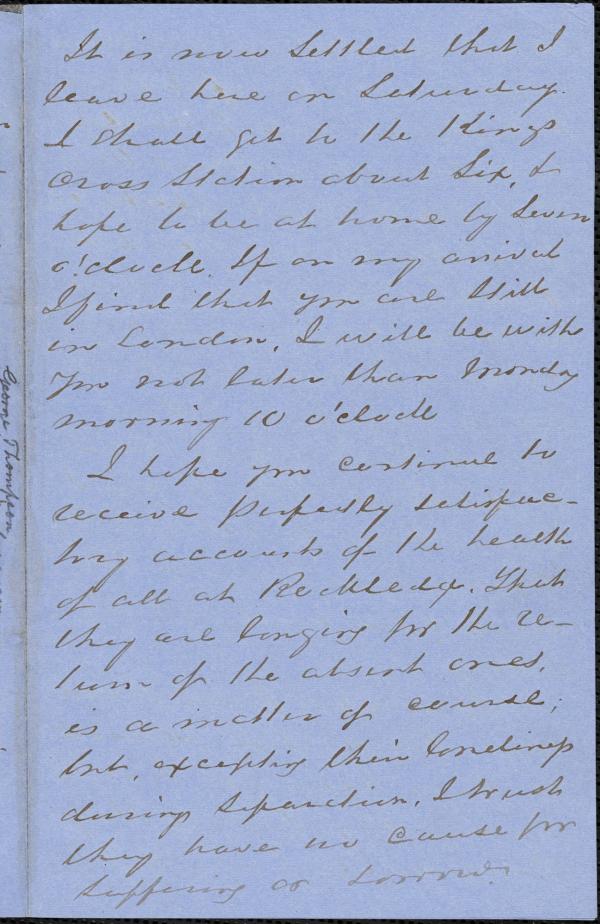 It is now settled that I
leave here on Saturday.
I shall get to the Kings
Cross Station about Six, &
hope to be at home by Seven
o'clock. If on my arrival
I find that you are still
in London, I will be with
you not later than Monday
morning 10 o'clock
I hope you continue to
receive perfectly satisfac-
tory accounts of the health
of all at Rockledge. That
they are longing for the re-
turn of the absent ones,
is a matter of course;
but, excepting their loneliness
during separation, I trust
they have no cause for
suffering or sorrow.
George Thompson